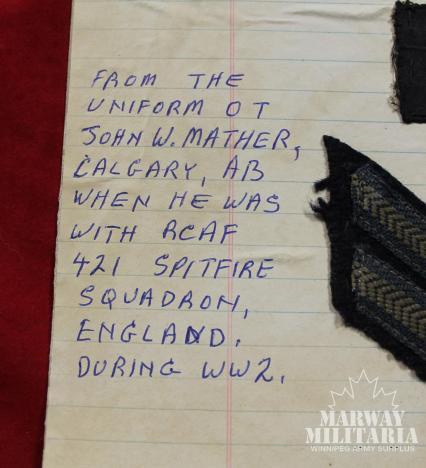 FROM THE
UNIFORM OT
JOHN W. MATHER,
CALGARY, AB
WHEN HE WAS
WITH RCAF
421 SPITFIRE
SQUADRON,
ENGLAND.
DURING WW2.
MARWAY
MILITARIA
WINNIPEG ARMY SURPLUS